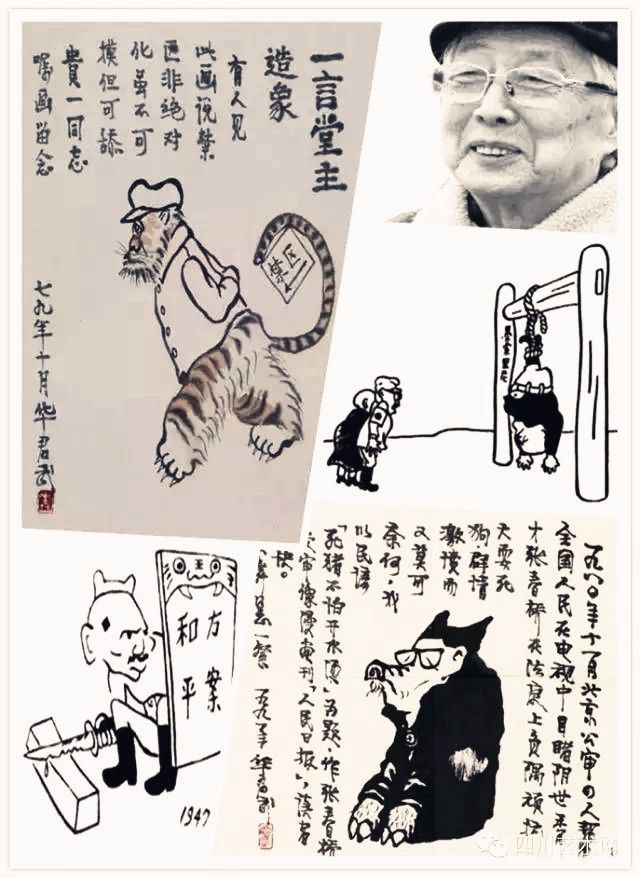 一言堂主
造象
有人见
此画说禁
区非绝对
化虽不可
摸但可舔
贵一同志
嘱画留念
七九年十月华君武
禁区
王
和平
方案
1947
一九八〇年十一月北京公审四人帮
全国人民在电视中目睹阴世秀
才张春桥在法庭上负隅顽抗
狗群情
激愤而
又莫可
奈何,我
以民谚
「死猪不怕开水烫」为题,作张春桥
审像漫画刊「人民日报」,读者
快。
华君武
四川艺术网